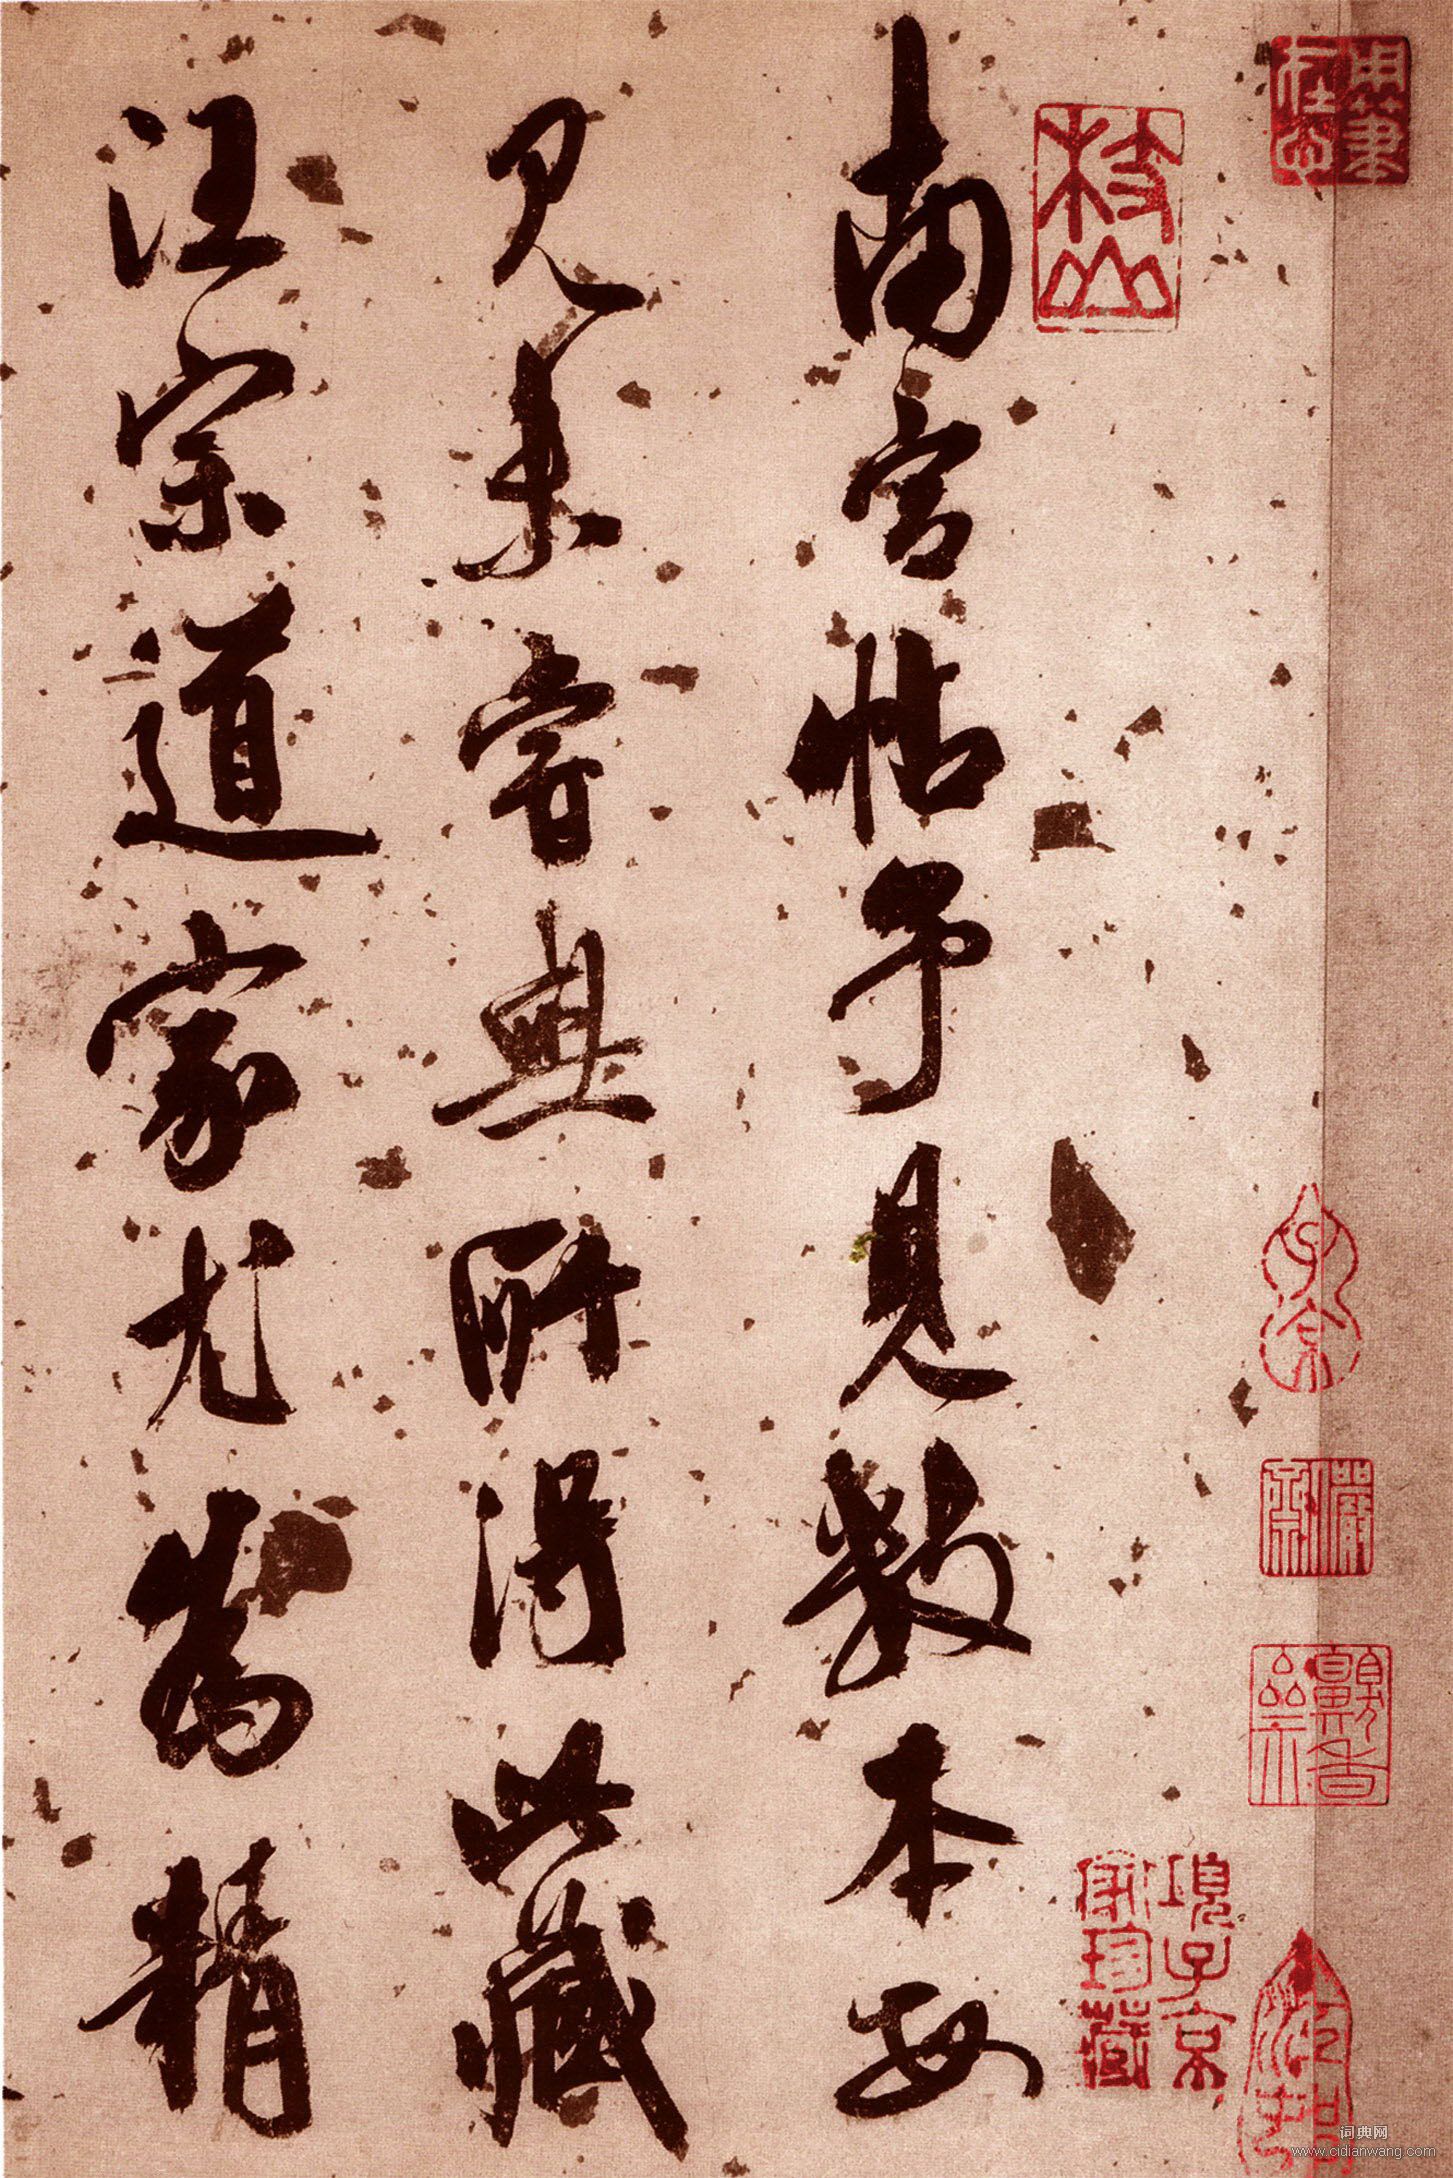 南宮帖予見數本每
見未嘗無所得此藏
汪宗道家尤為精
枝山
子京
項子京
家珍藏
词典网
www.cidianwang.com